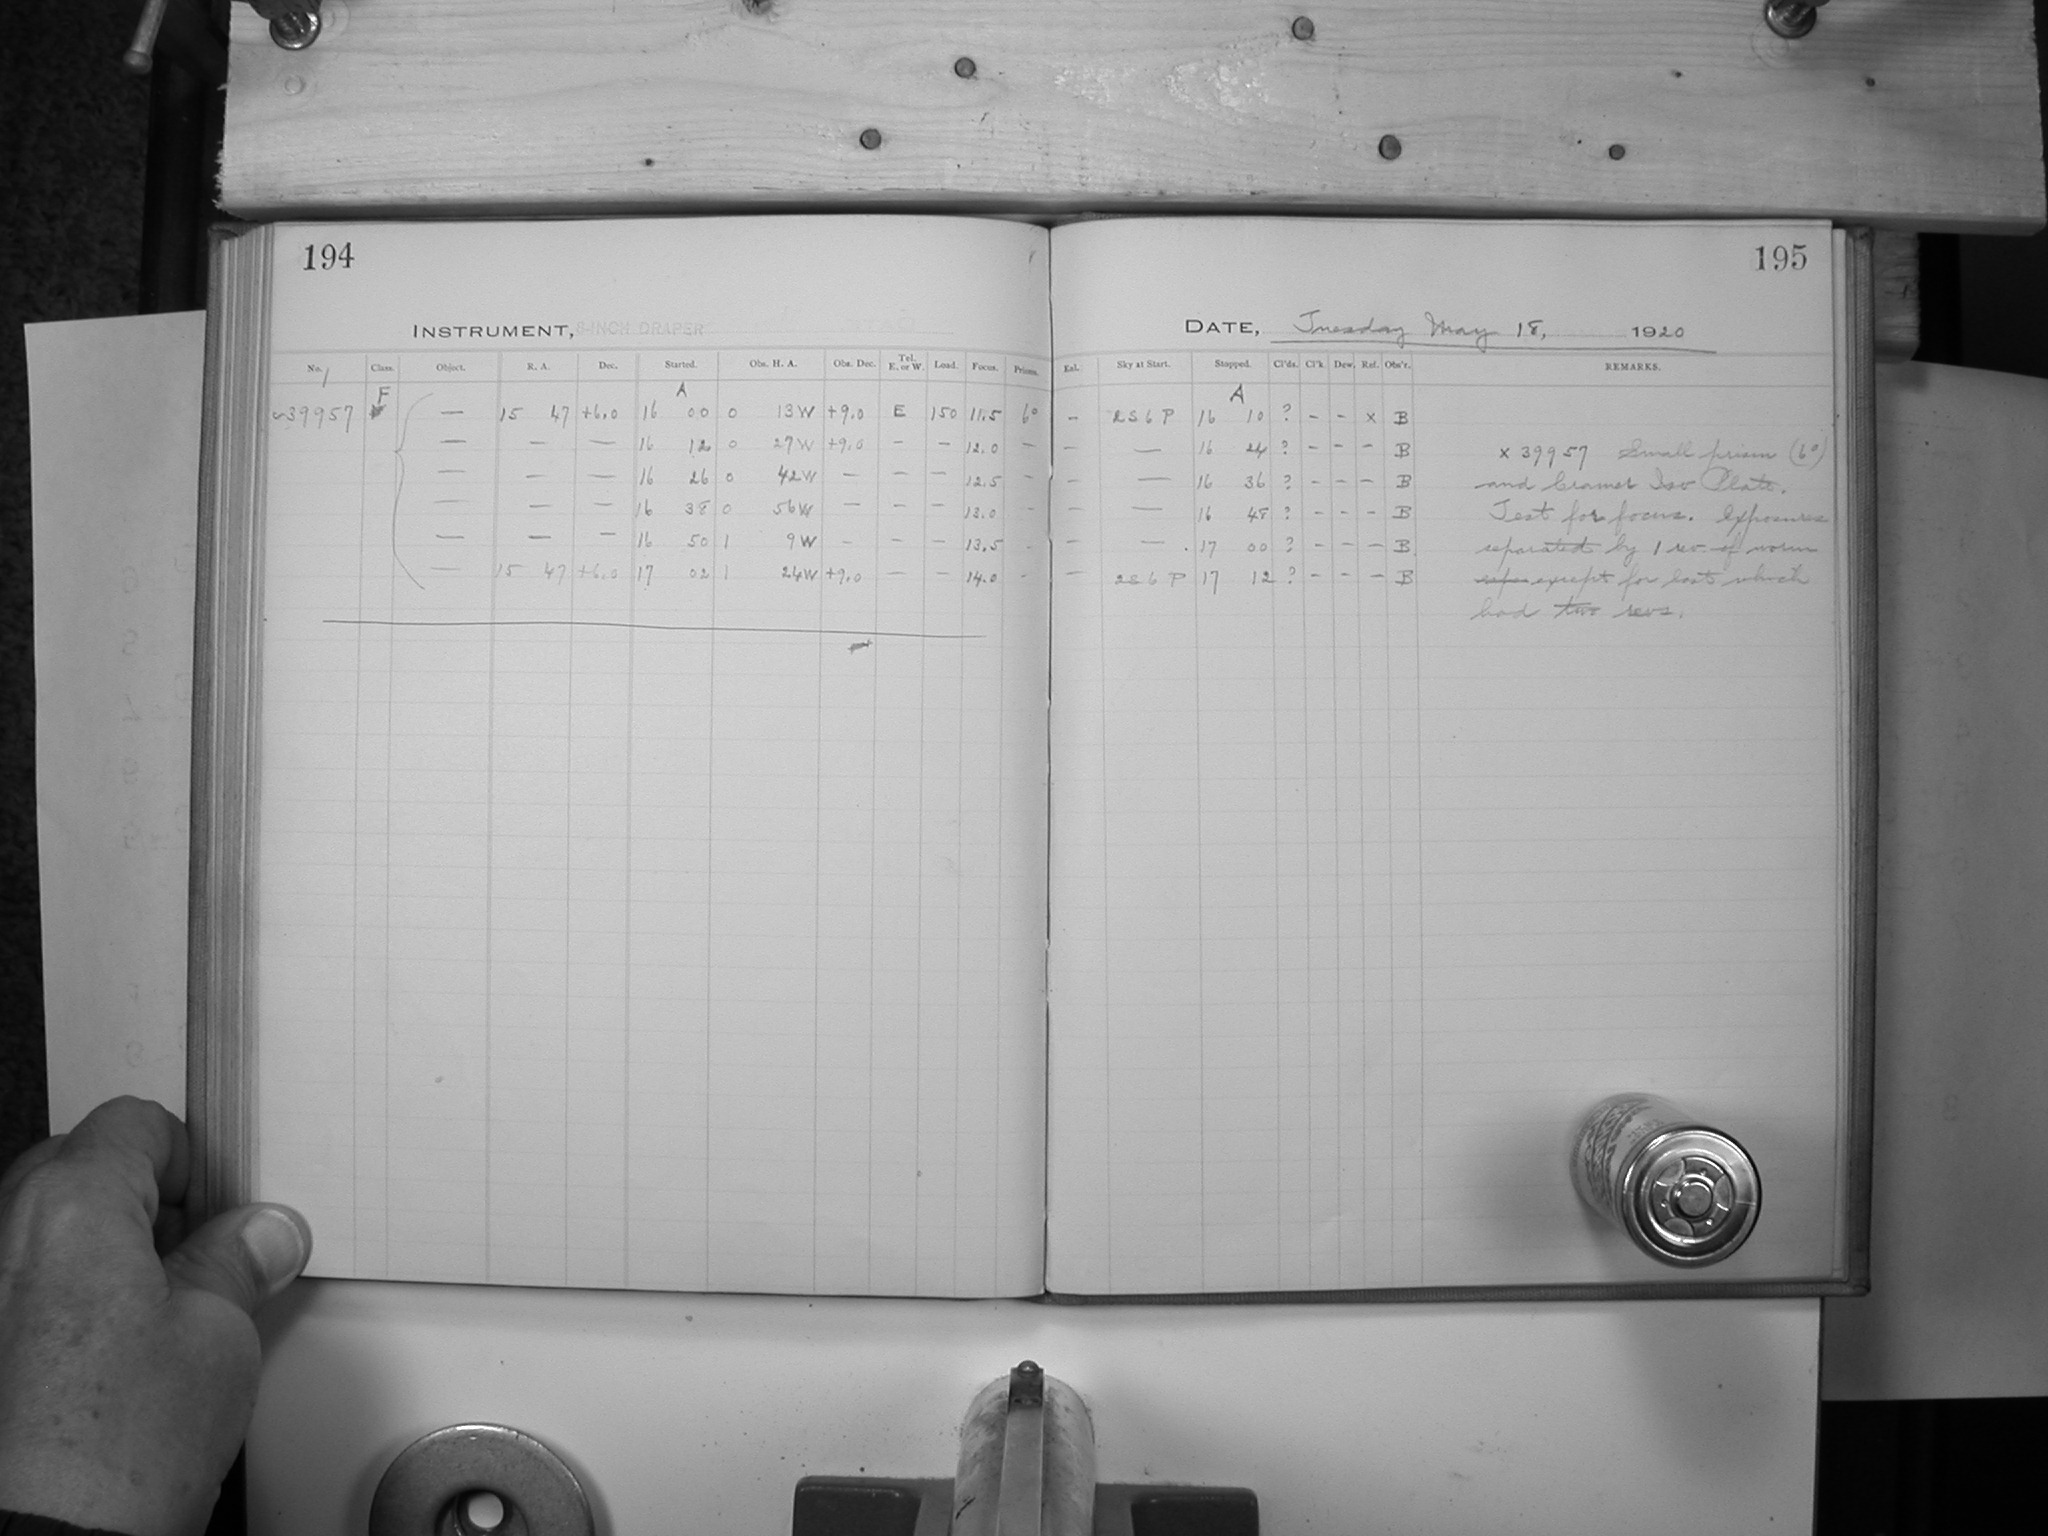 194
INSTRUMENT, 8-INCH DRAPER
No. Class. Object. R. A. Dec. Started. Obs. H. A. Obs. Dec. Tel. E. or W. Load. Focus. Prisms.
F A
39957 — 15 47 +6.0 16 00 0 13W +9.0 E 150 11.5 6°
— — — 16 12 0 27W +9.0 – – 12.0 –
— — — 16 26 0 42W – – – 12.5 –
— — — 16 38 0 56W – – – 13.0 –
— — — 16 50 1 9W – – – 13.5 -
— 15 47 +6.0 17 02 1 24W +9.0 – – 14.0 -
195
DATE, Tuesday May 18, 1920
Sky at Start. Stopped. Cl'ds. Cl'k Dew. Ref. Obs'r. REMARKS.
A
– 2S6P 16 10 ? – – x B
– — 16 24 ? – – – B
– — 16 36 ? – – – B
– — 16 48 ? – – – B
– — 17 00 ? – – – B
– 2S6P 17 12 ? – – – B
x 39957 Small prism (6°)
and Cramer Iso Plate.
Test for focus. Exposures
separated by 1 rev. of worm
except for last which
had two revs.